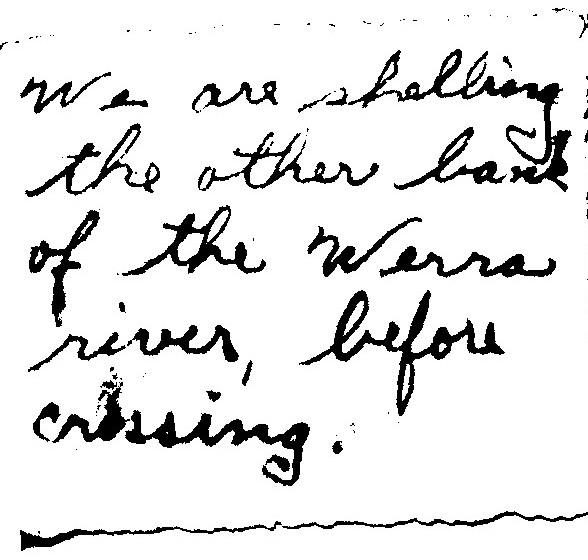 We are shelling
the other bank
of the Werra
river, before
crossing.